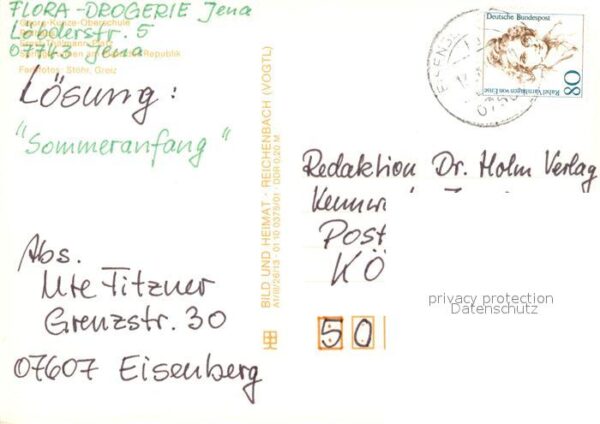 FLORA-DROGERIE Jena
Löbderstr. 5
07743 Jena
Farbfotos: Stöhr, Greiz
Lösung:
"Sommeranfang"
Abs.
Ute Titzner
Grenzstr. 30
07607 Eisenberg
BILD UND HEIMAT · REICHENBACH (VOGTL)
A1/III/26/13 · 01 10 0375/01 · DDR 0,20 M
Deutsche Bundespost
80
Rahel Varnhagen von Ense
Redaktion Dr. Holm Verlag
Post
KÖ
50
privacy protection
Datenschutz